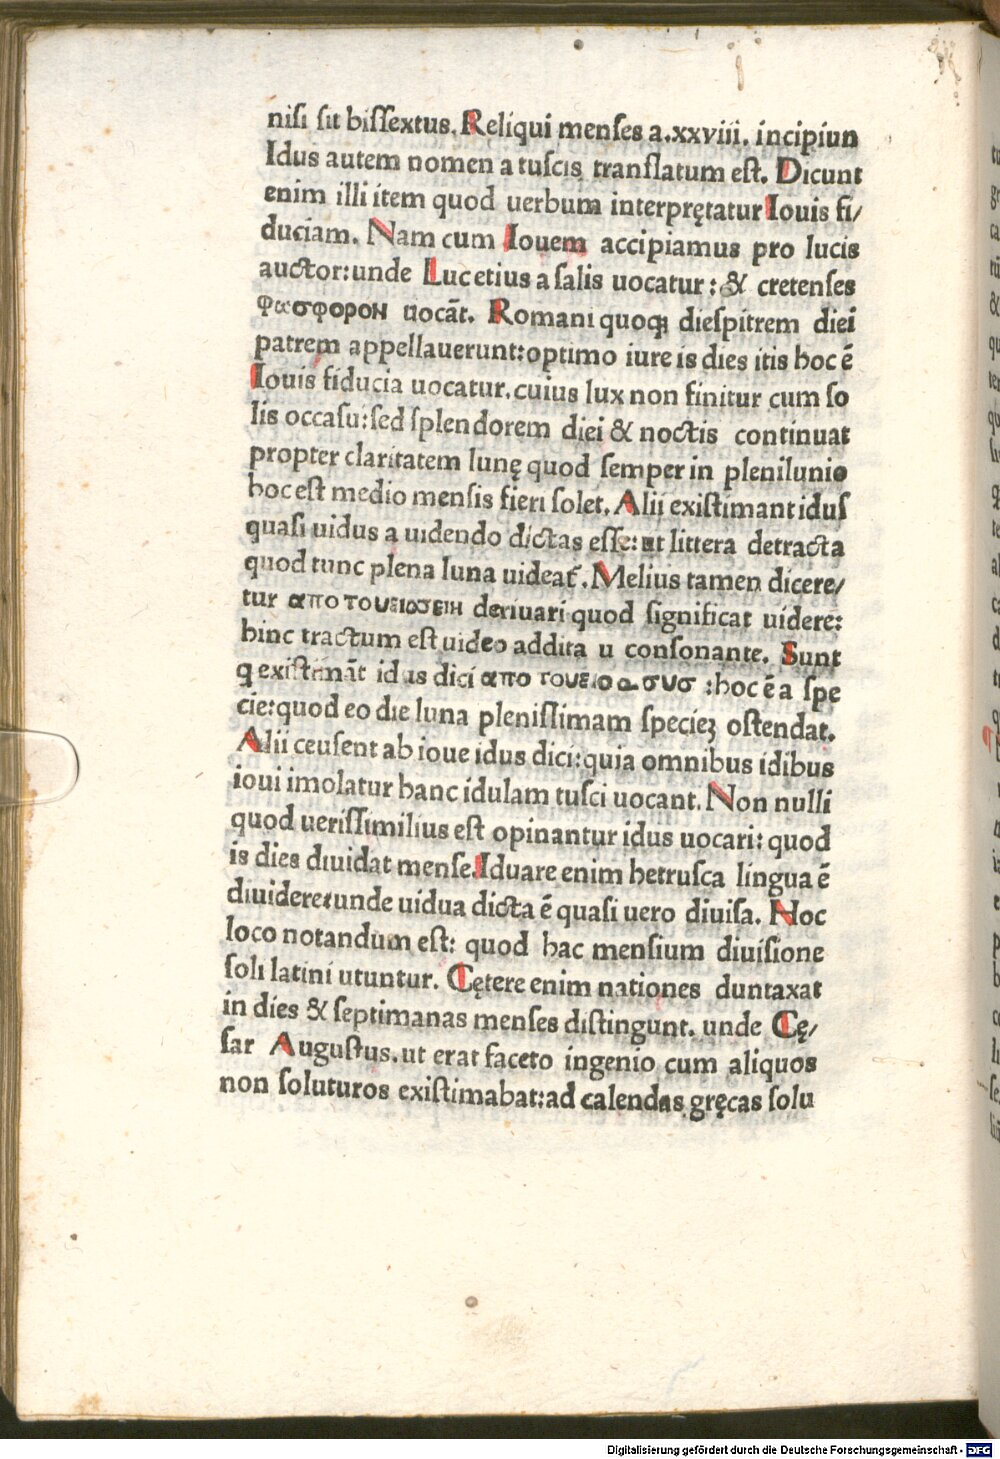 niſi ſit biſſextus. Reliqui menſes a.xxviii. incipiun
Idus autem nomen a tuſcis tranſlatum eſt. Dicunt
enim illi item quod uerbum interprętatur Iouis fi/
duciam. Nam cum Iouem accipiamus pro lucis
auctor: unde Lucetius a ſalis uocatur: & cretenſes
φωσφορον uocāt. Romani quoq; dieſpitrem diei
patrem appellauerunt: optimo iure is dies itis hoc ē
Iouis fiducia uocatur. cuius lux non finitur cum ſo
lis occaſu: ſed ſplendorem diei & noctis continuat
propter claritatem lunę quod ſemper in plenilunio
hoc eſt medio menſis fieri ſolet. Alii exiſtimant iduſ
quaſi uidus a uidendo dictas eſſe: ut littera detracta
quod tunc plena luna uideat̄. Melius tamen dicere/
tur απο του ειδσειν deriuari quod ſignificat uidere:
hinc tractum eſt uideo addita u conſonante. Sunt
q exiſtimāt idus dici απο του ειδασυσ : hoc ē a ſpe
cie: quod eo die luna pleniſſimam ſpecieȝ oſtendat.
Alii ceuſent ab ioue idus dici: quia omnibus idibus
ioui imolatur hanc idulam tuſci uocant. Non nulli
quod ueriſſimilius eſt opinantur idus uocari: quod
is dies diuidat menſe. Iduare enim hetruſca lingua ē
diuidere: unde uidua dicta ē quaſi uero diuiſa. Noc
loco notandum eſt: quod hac menſium diuiſione
ſoli latini utuntur. Cętere enim nationes duntaxat
in dies & ſeptimanas menſes diſtingunt. unde Cę/
ſar Auguſtus. ut erat faceto ingenio cum aliquos
non ſoluturos exiſtimabat: ad calendas gręcas ſolu
Digitalisierung gefördert durch die Deutsche Forschungsgemeinschaft - DFG